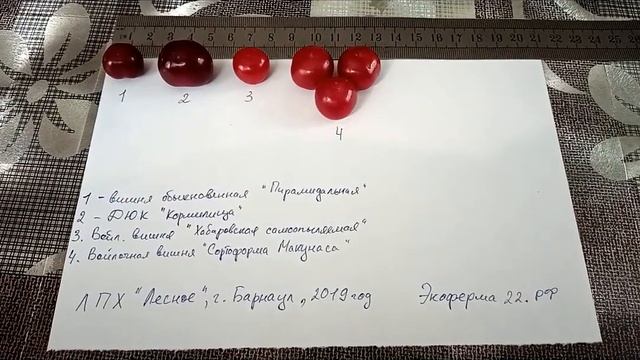 1 2 3 4 5 6 7 8 9 10 11 12 13 14 15 16 17 18 19 20 21 22 23 24 25 26 27 28
1 2 3
4
1 - вишня обыкновенная "Пирамидальная"
2 - ДЮК "Кормилица"
3. Войл. вишня "Хабаровская самоопыляемая"
4. Войлочная вишня "Сортоформа Макунаса"
ЛПХ "Лесное", г. Барнаул, 2019 год Экоферма 22. рф